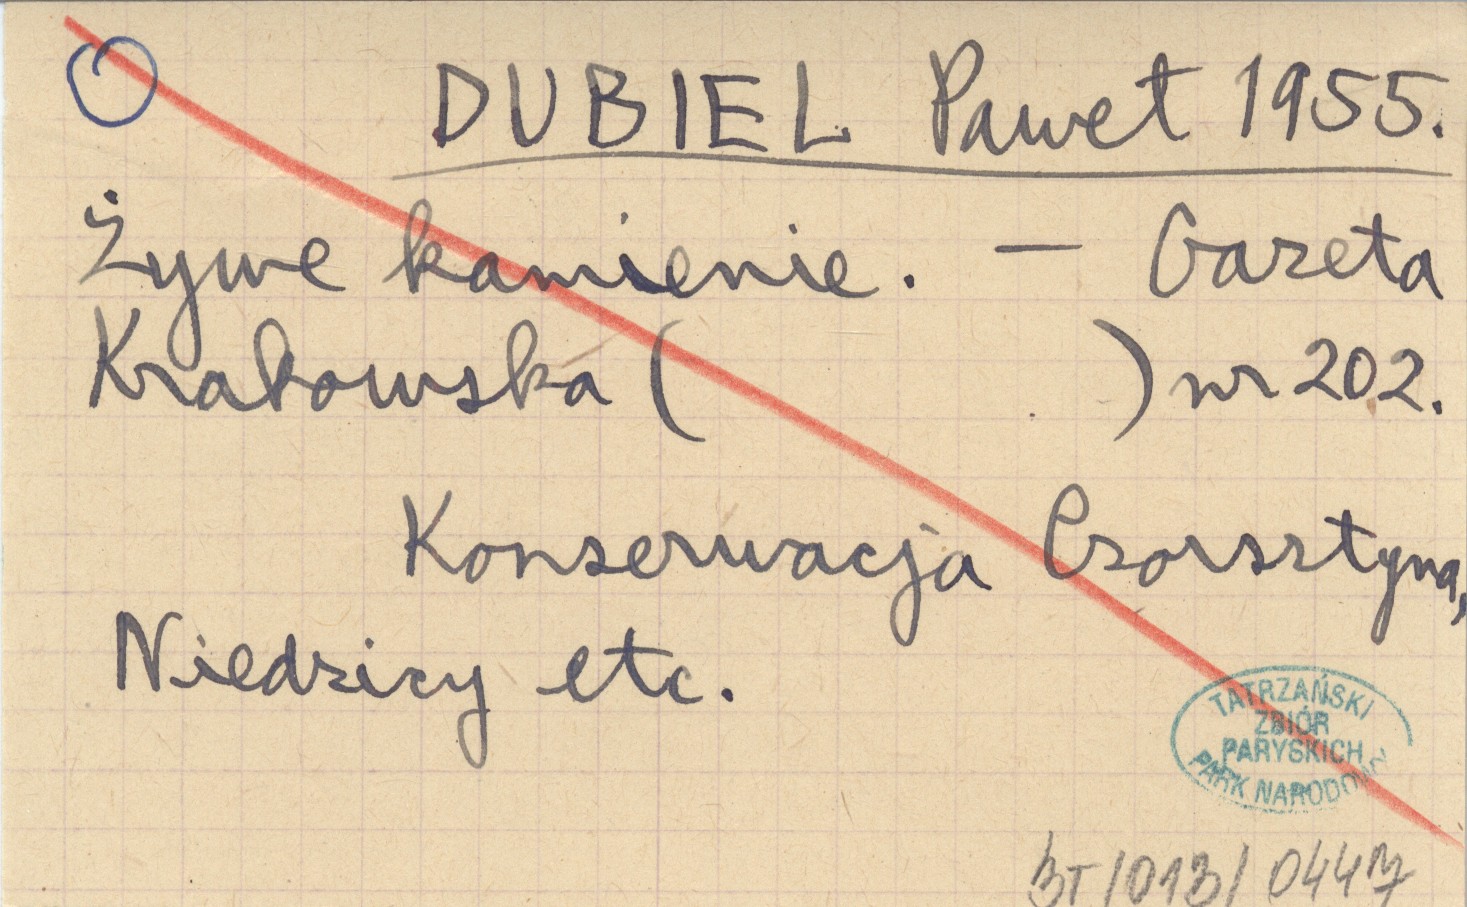 DUBIEL Paweł 1955.
Żywe kamienie. — Gazeta
Krakowska ( ) nr 202.
Konserwacja Czorsztyna,
Niedzicy etc.
TATRZAŃSKI
ZBIÓR
PARYSKICH
PARK NARODOWY
BT/013/0447